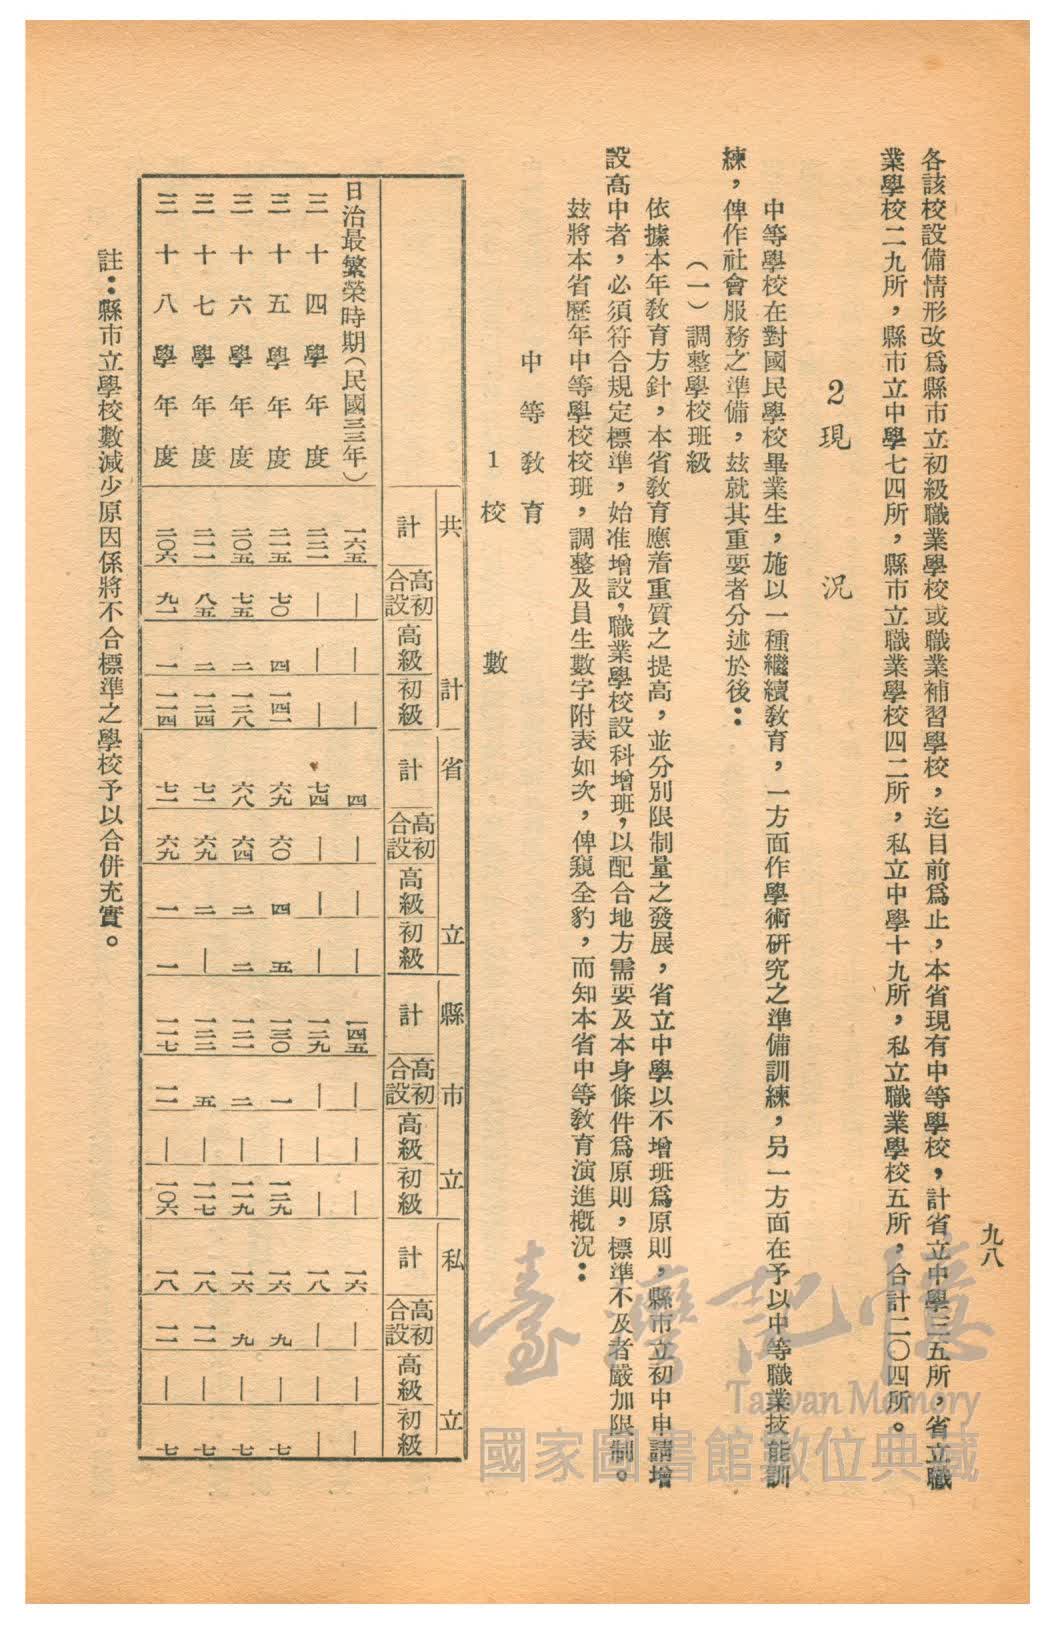 九八
各該校設備情形改爲縣市立初級職業學校或職業補習學校，迄目前爲止，本省現有中等學校，計省立中學三五所，省立職
業學校二九所，縣市立中學七四所，縣市立職業學校四二所，私立中學十九所，私立職業學校五所，合計二〇四所。
2現　況
中等學校在對國民學校畢業生，施以一種繼續敎育，一方面作學術研究之準備訓練，另一方面在予以中等職業技能訓
練，俾作社會服務之準備，茲就其重要者分述於後：
（一）調整學校班級
依據本年敎育方針，本省敎育應着重質之提高，並分別限制量之發展，省立中學以不增班爲原則，縣市立初中申請增
設高中者，必須符合規定標準，始准增設，職業學校設科增班，以配合地方需要及本身條件爲原則，標準不及者嚴加限制。
茲將本省歷年中等學校校班，調整及員生數字附表如次，俾窺全豹，而知本省中等敎育演進槪況：
中等敎育
1校　數
共計　省立　縣市立　私立
計　高初合設　高級　初級　計　高初合設　高級　初級　計　高初合設　高級　初級　計　高初合設　高級　初級
日治最繁榮時期（民國三三年）　一六五　—　—　—　四　—　—　—　一四五　—　—　—　一六　—　—　—
三十四學年度　二二一　—　—　—　七四　—　—　—　一二九　—　—　—　一八　—　—　—
三十五學年度　二一五　七〇　四　一四一　六九　六〇　四　五　一三〇　一　—　一二九　一六　九　—　七
三十六學年度　二〇五　七五　二　一二八　六八　六四　二　二　一二一　二　—　一一九　一六　九　—　七
三十七學年度　二一一　八五　二　一二四　七一　六九　二　—　一二二　五　—　一一七　一八　一一　—　七
三十八學年度　二〇六　九一　一　一一四　七一　六九　一　一　一一七　一一　—　一〇六　一八　一一　—　七
註：縣市立學校數減少原因係將不合標準之學校予以合併充實。
臺灣記憶
Taiwan Memory
國家圖書館數位典藏